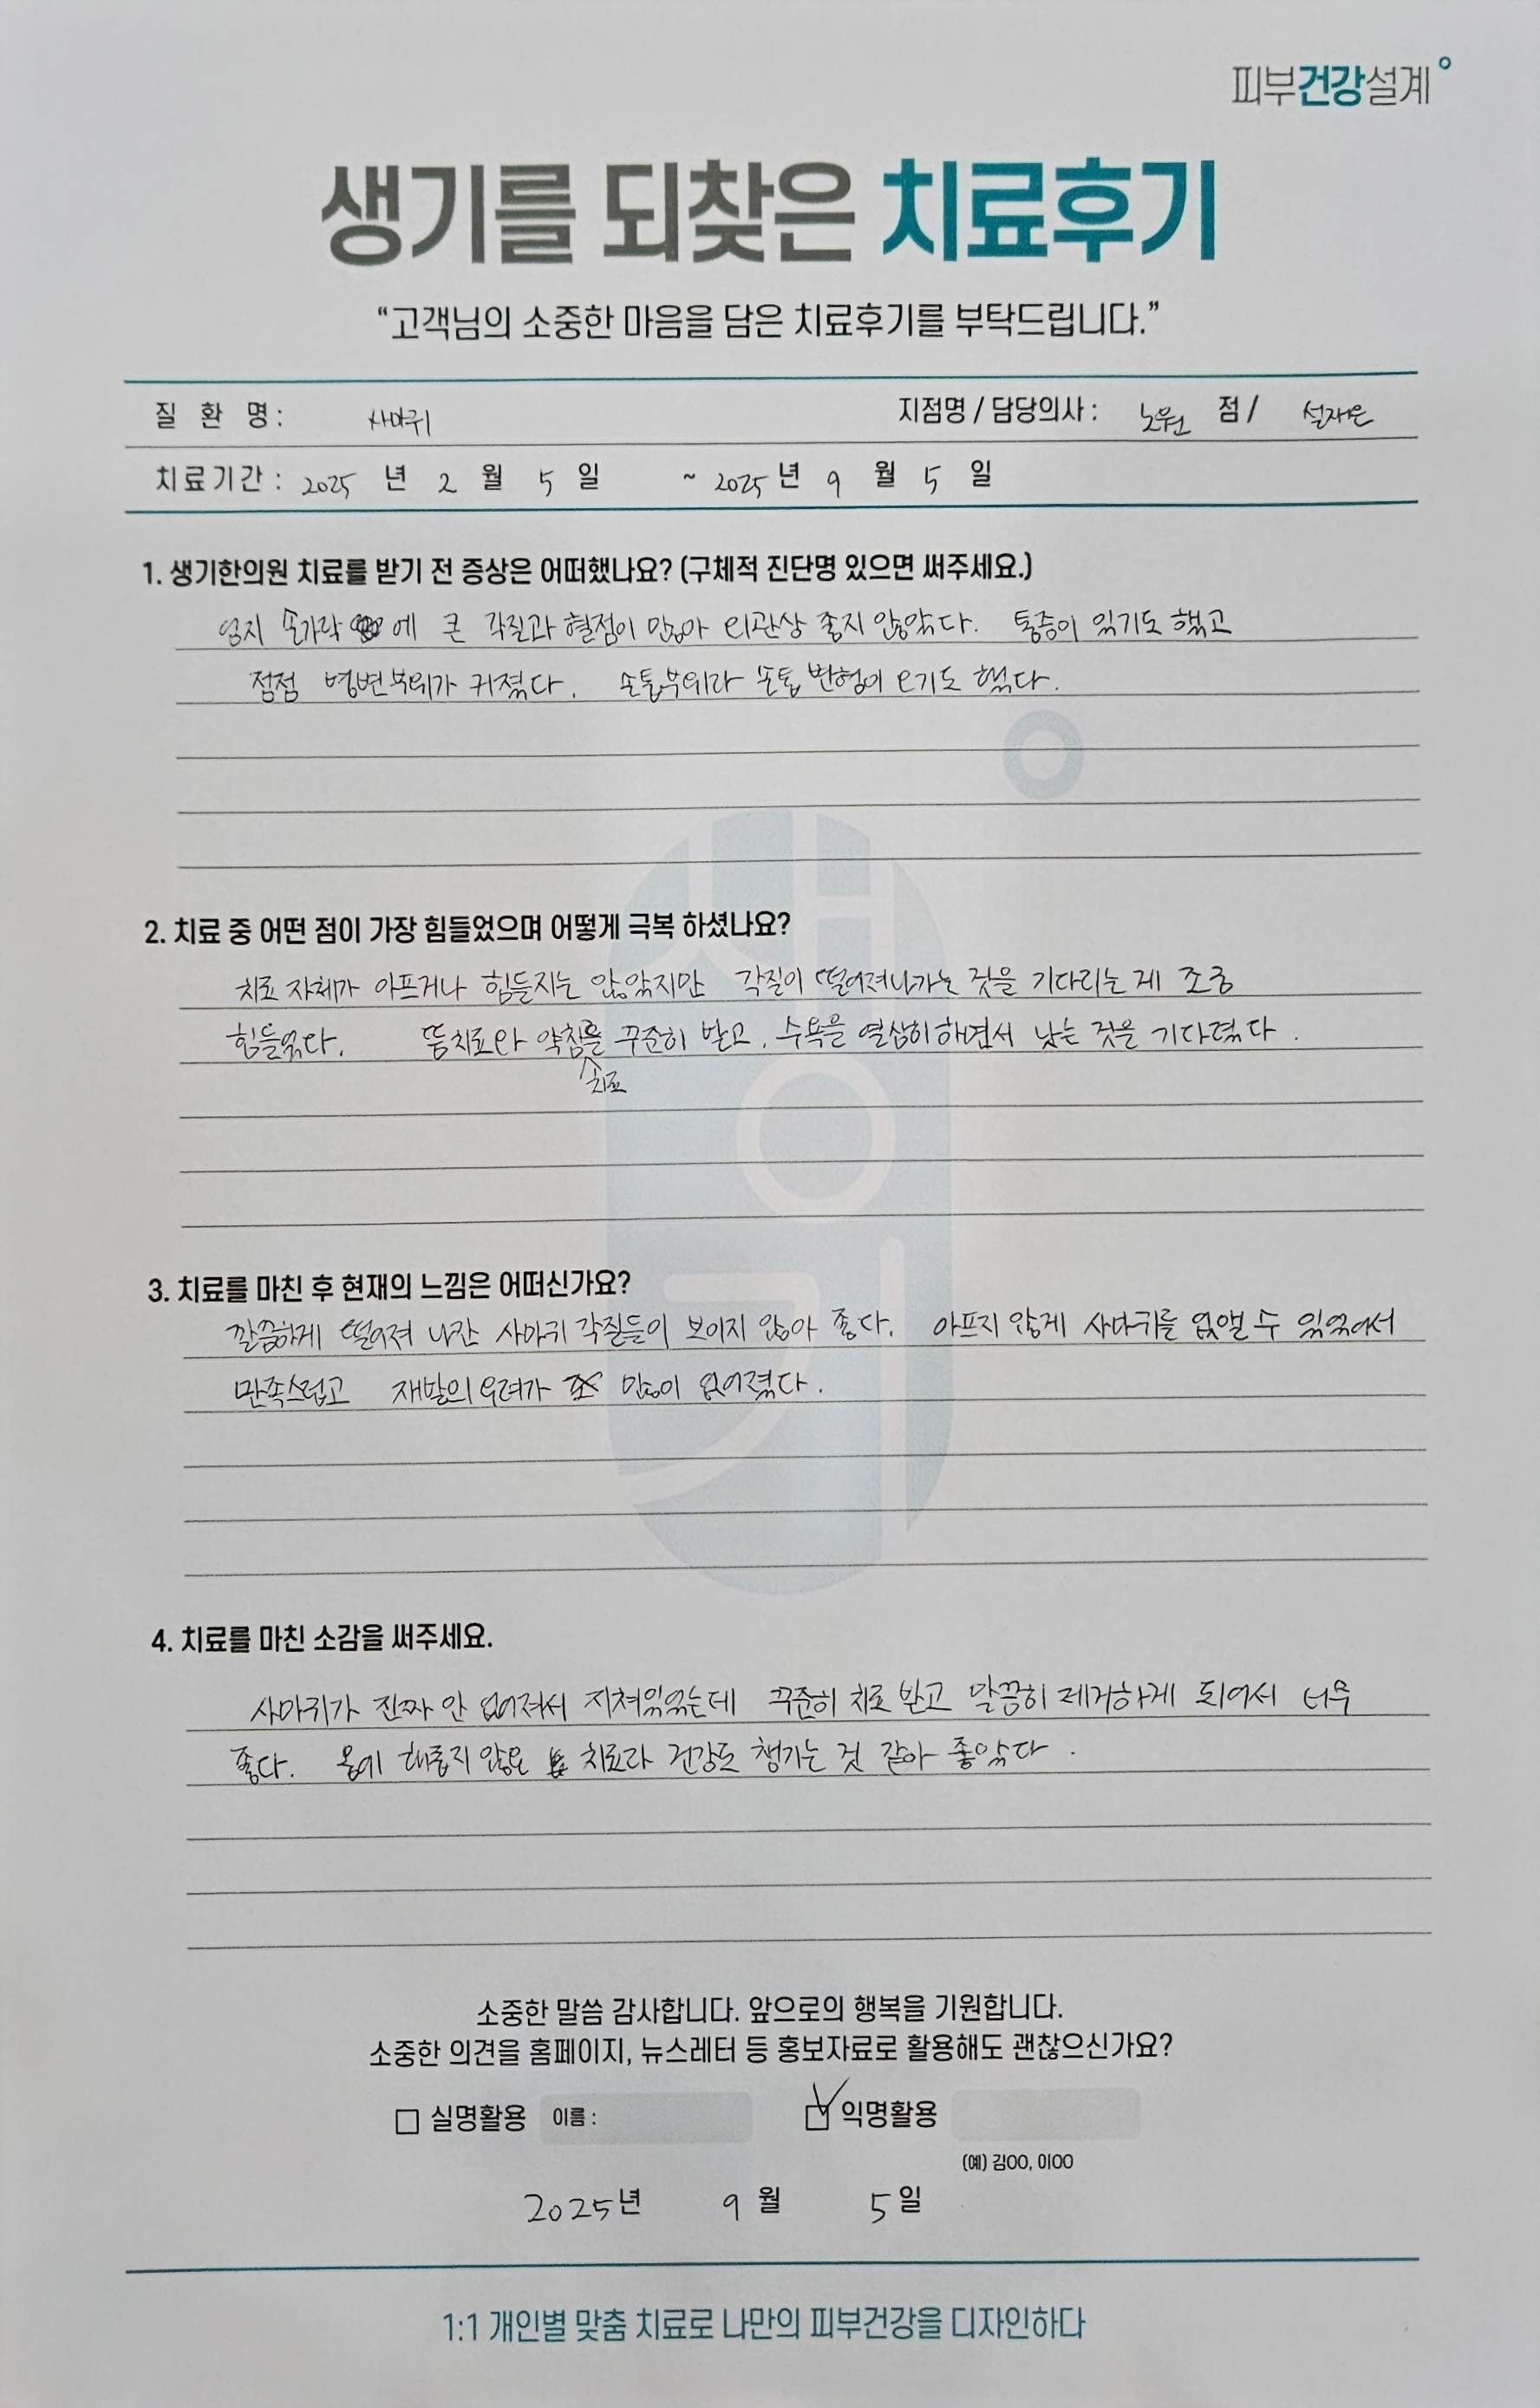 피부건강설계
생기를 되찾은 치료후기
“고객님의 소중한 마음을 담은 치료후기를 부탁드립니다.”
질 환 명 : 사마귀 지점명 / 담당의사 : 노원 점 / 설재은
치료기간 : 2025 년 2 월 5 일 ~ 2025 년 9 월 5 일
1. 생기한의원 치료를 받기 전 증상은 어떠했나요? (구체적 진단명 있으면 써주세요.)
엄지 손가락에 큰 각질과 혈점이 많아 외관상 좋지 않았다. 통증이 있기도 했고
점점 병변부위가 커졌다. 손톱부위라 손톱 변형이 오기도 했다.
2. 치료 중 어떤 점이 가장 힘들었으며 어떻게 극복 하셨나요?
치료 자체가 아프거나 힘들지는 않았지만 각질이 떨어져나가는 것을 기다리는 게 조금
힘들었다. 뜸치료와 약침치료를 꾸준히 받고, 수욕을 열심히 하면서 낫는 것을 기다렸다.
3. 치료를 마친 후 현재의 느낌은 어떠신가요?
깔끔하게 떨어져 나간 사마귀 각질들이 보이지 않아 좋다. 아프지 않게 사마귀를 없앨 수 있었어서
만족스럽고 재발의 우려가 많이 없어졌다.
4. 치료를 마친 소감을 써주세요.
사마귀가 진짜 안 없어져서 지쳐있었는데 꾸준히 치료 받고 말끔히 제거하게 되어서 너무
좋다. 몸에 해롭지 않은 치료라 건강도 챙기는 것 같아 좋았다.
소중한 말씀 감사합니다. 앞으로의 행복을 기원합니다.
소중한 의견을 홈페이지, 뉴스레터 등 홍보자료로 활용해도 괜찮으신가요?
실명활용 이름 : 익명활용
(예) 김OO, 이OO
2025년 9 월 5일
1:1 개인별 맞춤 치료로 나만의 피부건강을 디자인하다